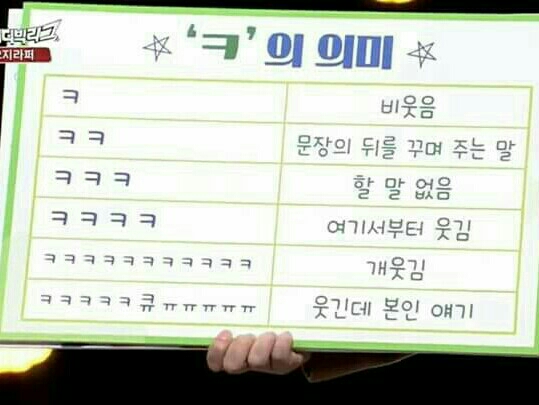 코미디빅리그
오지라퍼
'ㅋ'의 의미
ㅋ 비웃음
ㅋㅋ 문장의 뒤를 꾸며 주는 말
ㅋㅋㅋ 할 말 없음
ㅋㅋㅋㅋ 여기서부터 웃김
ㅋㅋㅋㅋㅋㅋㅋㅋㅋㅋㅋ 개웃김
ㅋㅋㅋㅋㅋ큐ㅠㅠㅠㅠㅠ 웃긴데 본인 얘기